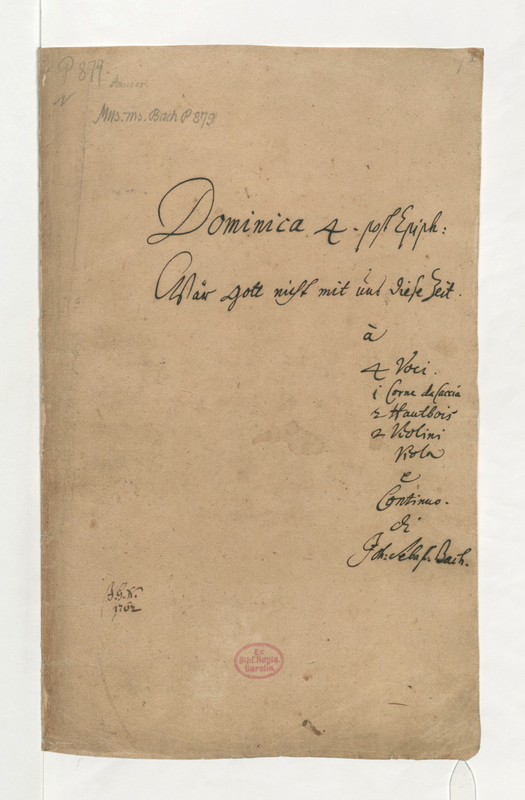 P 879.
Mus. ms. Bach P 879
Dominica 4 post Epiph:
Wär Gott nicht mit uns diese Zeit.
à
4 Voci.
1 Corne da Caccia
2 Hautbois
2 Violini
Viola
e
Continuo.
di
Joh: Sebast. Bach.
1762
Ex
Bibl. Regia
Berolin.